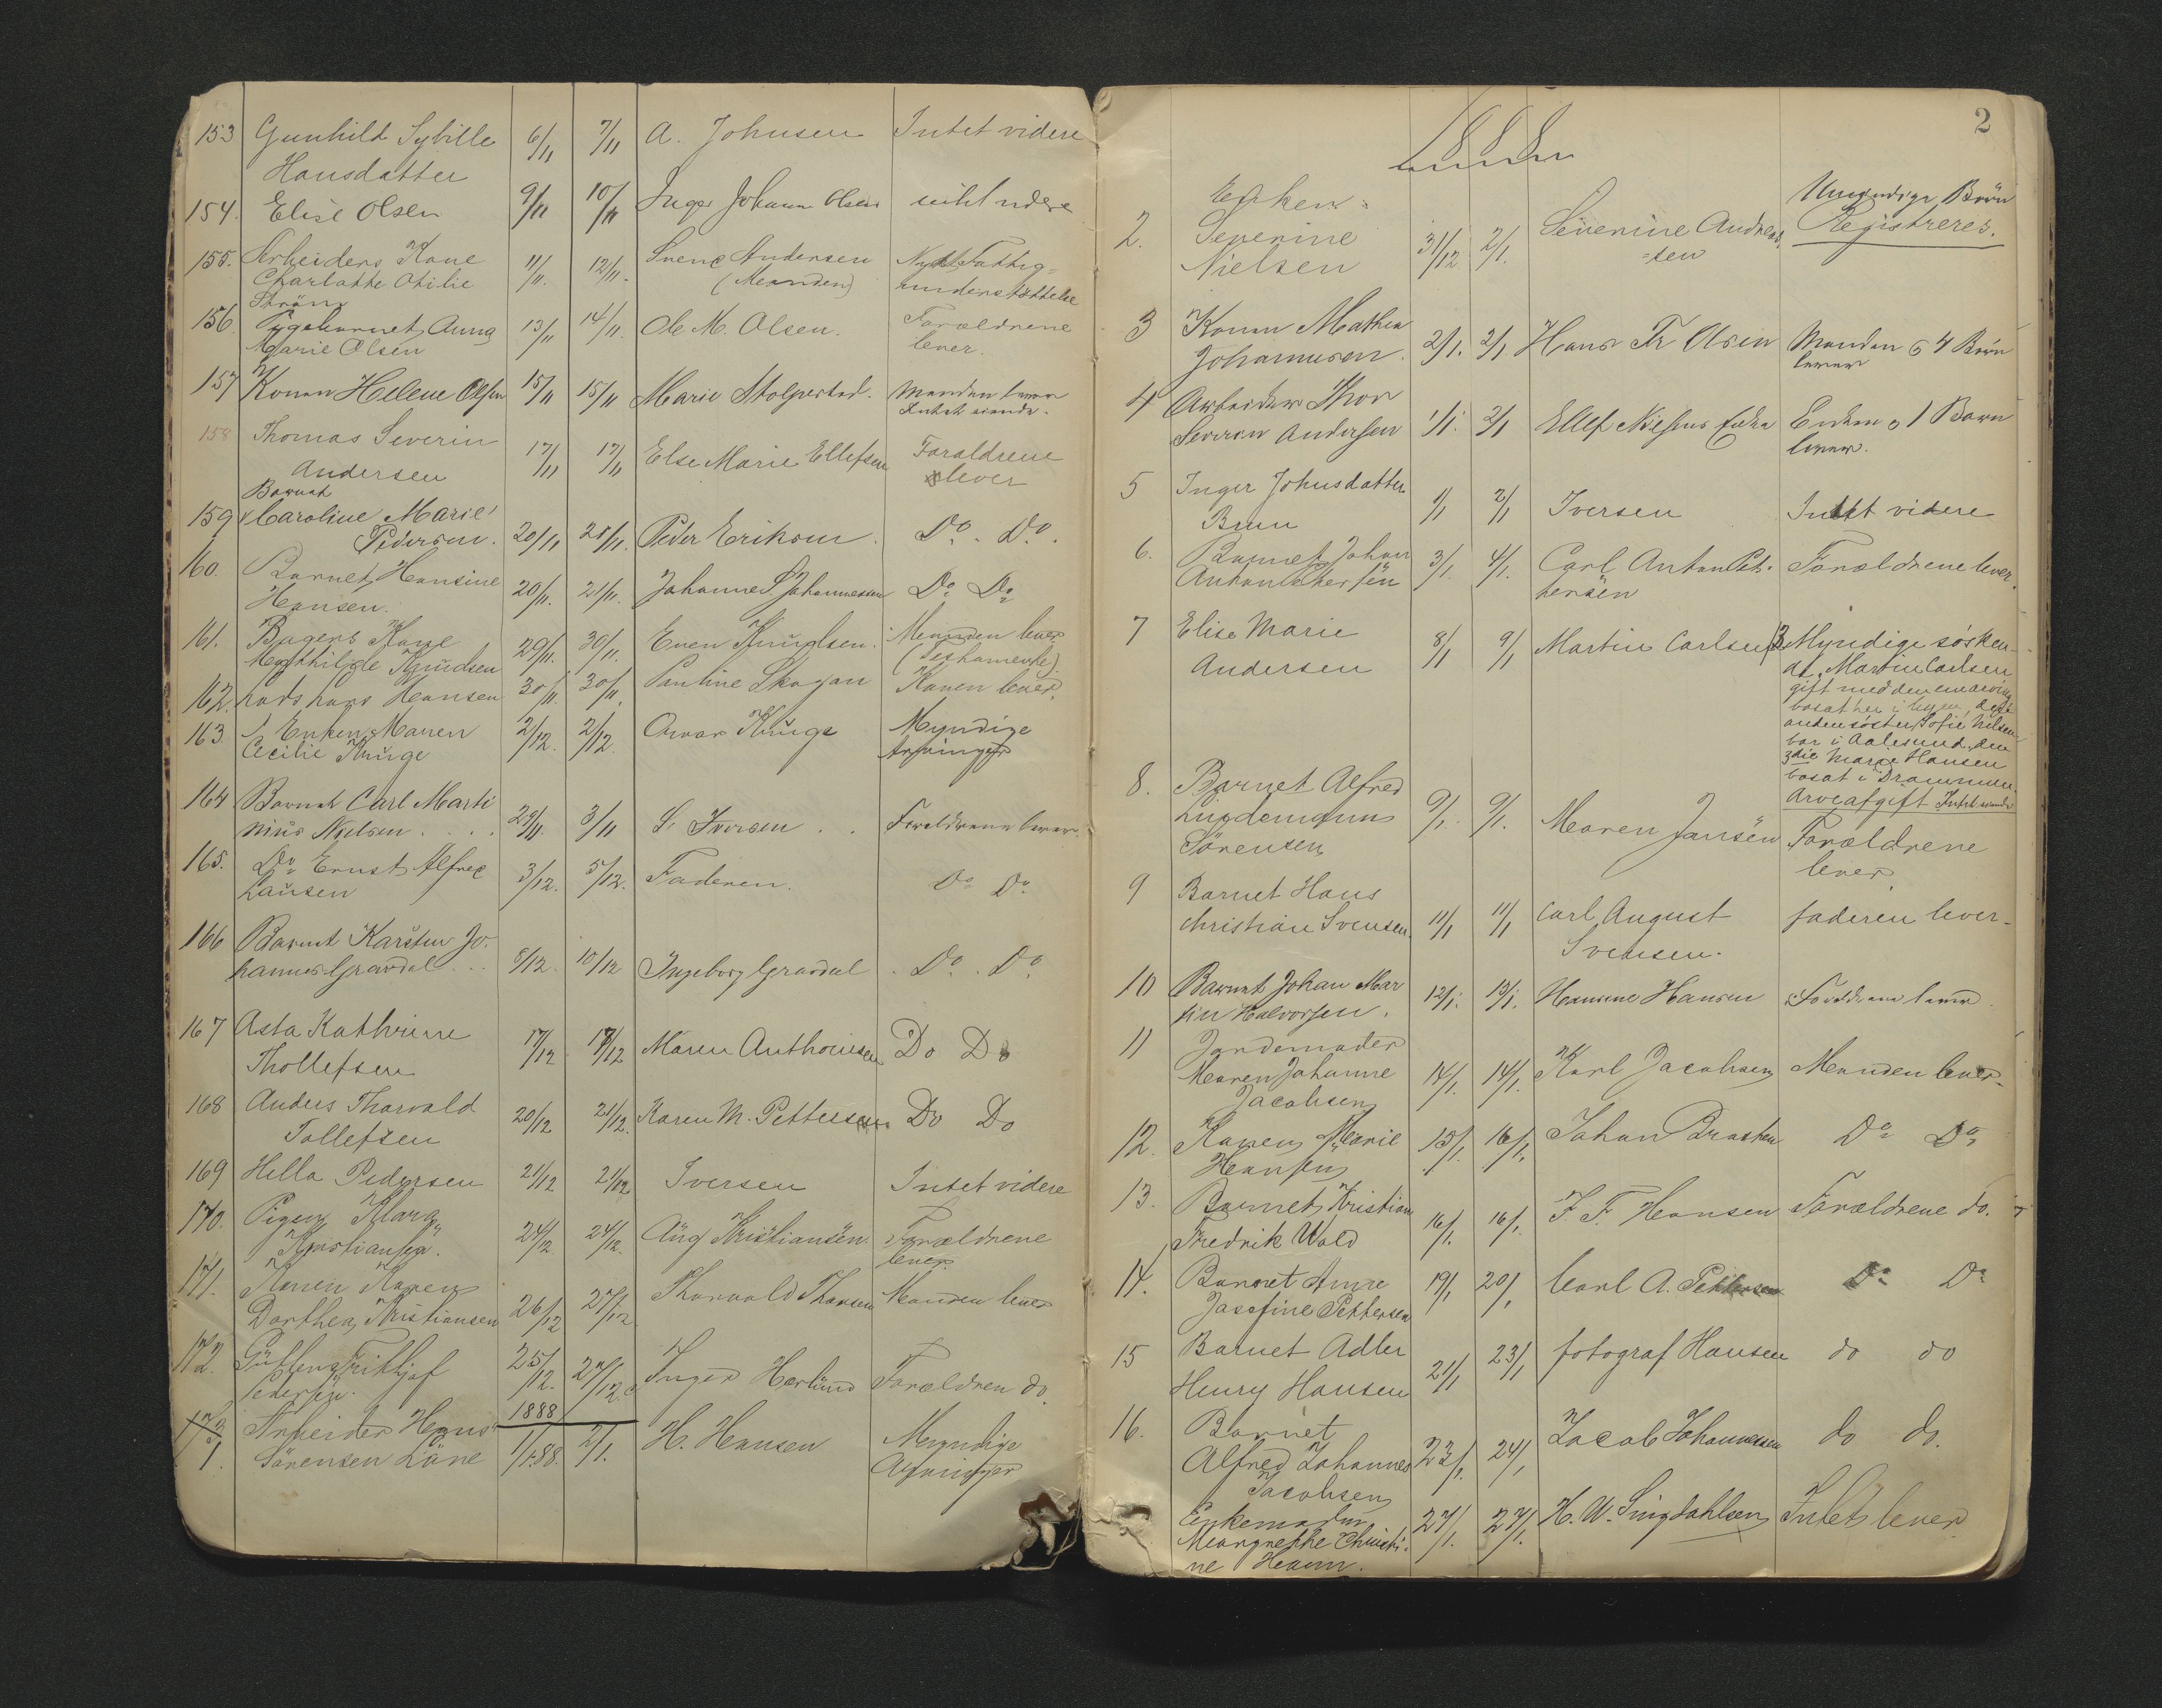 153 Gunhild Sybille 6/11 7/11 A. Johnsen Intet videre
Hansdatter
154. Elise Olsen 9/11 10/11 Inger Johanne Olsen
155. Arbeiders Kone 11/11. 12/11. Svend Andersen Nydt Fattig-
Charlotte Otilie (Manden) understöttelse
Ström
156. Pigebarnet Anna 13/11 14/11. Ole M. Olsen. Forældrene
Marie Olsen lever.
157 Konen Helene Olsen 15/11 15/11 Marie Stolpestad. Manden lever
Intet eiende.
158 Thomas Severin 17/11 17/11 Else Marie Ellefsen Forældrene
Andersen lever
Barnet
159 Caroline Marie 20/11 21/11. Peder Eriksen. Do. Do.
Pedersen.
160. Barnet Hansine 20/11. 21/11. Johannes Johannessen Do Do
Hansen.
161. Bagers Kone 29/11. 30/11. Even Knudsen. Manden lever
Mathilde Knudsen (Testamente)
162. Lods Lars Hansen 30/11. 30/11. Pauline Skogan Konen lever.
163 Enken Maren 2/12. 2/12. Kruge Myndige
Cecilie Kruge Arvinger
164 Barnet Carl Marti 29/11. 3/11 S. Iversen . . Forældrene lever.
nius Nielsen . . . .
165. Do Ernst Alfred 3/12. 5/12. Faderen. Do Do
Lausen
166 Barnet Karsten Jo- 8/12. 10/12 Ingeborg Gravdal . Do . Do
hannes Gravdal . . .
167 Asta Kathrine 17/12 18/12 Maren Anthonisen Do Do
Thollefsen
168 Anders Thorvald 20/12 21/12. Karen M. Pettersen Do Do
Tollefsen
169 Hella Pedersen 21/12 21/12 Iversen Intet videre
170. Pigen Klara 24/12 24/12. Aug Kristiansen. Forældrene
Kristiansen. lever.
171. Konen Karen 26/12 27/12 Thorvald Thorsen Manden lever
Dorthea Kristiansen
172. Gutten Frithjof 25/12. 27/12. Inger Herlund Forældren do.
Pedersen.
1888
1. Arbeider Hans 1/1.88. 2/1. H. Hansen Myndige
Sörensen Läne Arvinger
2
Enken Umyndige Börn
2. Severine 31/12 2/1. Severine Andrea- Registreres.
Nielsen -sen
3 Konen Mathea 2/1. 2/1 Hans Fr Olsen Manden o 4 Börn
Johannesen. lever
4 Arbeider Thor 1/1. 2/1 Ellef Nielsens Enke Enken o 1 Barn
Severin Andersen lever.
5 Inger Johnsdatter 1/1 2/1 Iversen Intet videre
Brun
6. Barnet Johan 3/1. 4/1. Carl Anton Pet- Forældrene lever.
Anton Petersen tersen
7 Elise Marie 8/1 9/1 Martin Carlsen 3 Myndige søsken-
Andersen af. Martin Carlsen
gift med den ene
bosat her i byen, den
anden søster Sofie Nilsen
bor i Aalesund, den
3die Marie Hansen
bosat i Drammen.
Arveafgift
8. Barnet Alfred 9/1. 9/1. Maren Jansen Forældrene
Lindemann lever.
Sörensen
9 Barnet Hans 11/1 11/1 Carl August faderen lever.
Christian Svensen. Svensen.
10 Barnet Johan Mar 12/1. 13/1. Hansine Hansen Forældrene lever.
tin Halvorsen.
11 Jordemoder 14/1. 14/1. Karl Jacobsen Manden lever.
Maren Johanne
Jacobsen
12. Karen Marie 15/1. 16/1. Johan Brashen Do Do
Hansen
13. Barnet Kristian 16/1. 16/1. F. F. Hansen Forældrene do.
Fredrik Wold
14. Barnet Anne 19/1 20/1 Carl A. Pettersen Do Do
Josefine Pettersen
15 Barnet Adler 21/1 23/1 fotograf Hansen do do
Henry Hansen
16. Barnet 23/1. 24/1 Jacob Johannessen do do.
Alfred Johannes
Jacobsen
Enkemadam 27/1. 27/1. H. W. Lingdahlsen Intet lever
Margrethe Christi-
ne Heaum.